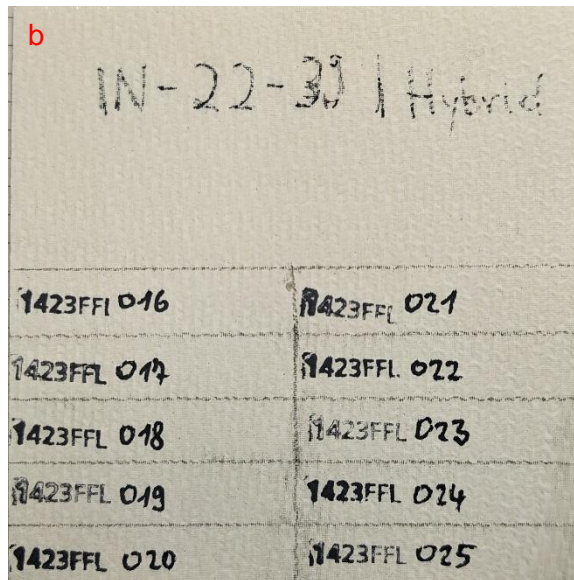 b
IN-22-39 | Hybrid
1423FFL 016
1423FFL 021
1423FFL 017
1423FFL. 022
1423FFL 018
1423FFL 023
1423FFL 019
1423FFL 024
1423FFL 020
1423FFL 025